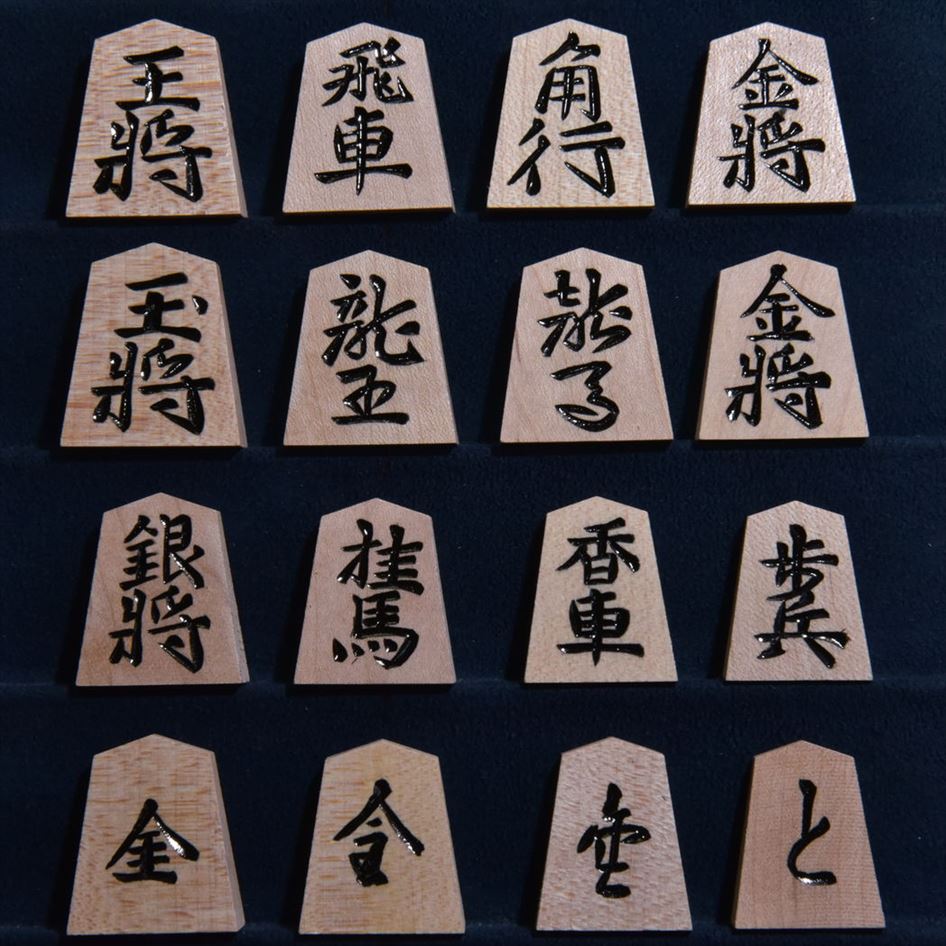 王將
飛車
角行
金將
玉將
龍王
龍馬
金將
銀將
桂馬
香車
歩兵
金
と